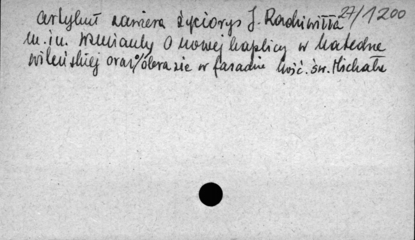 27/1200
artykuł zawiera życiorys J. Radziwiłła
m.in. wzmianky o nowej kaplicy w katedrze
wileńskiej oraz o obrazie w fasadzie kośc. św. Michała